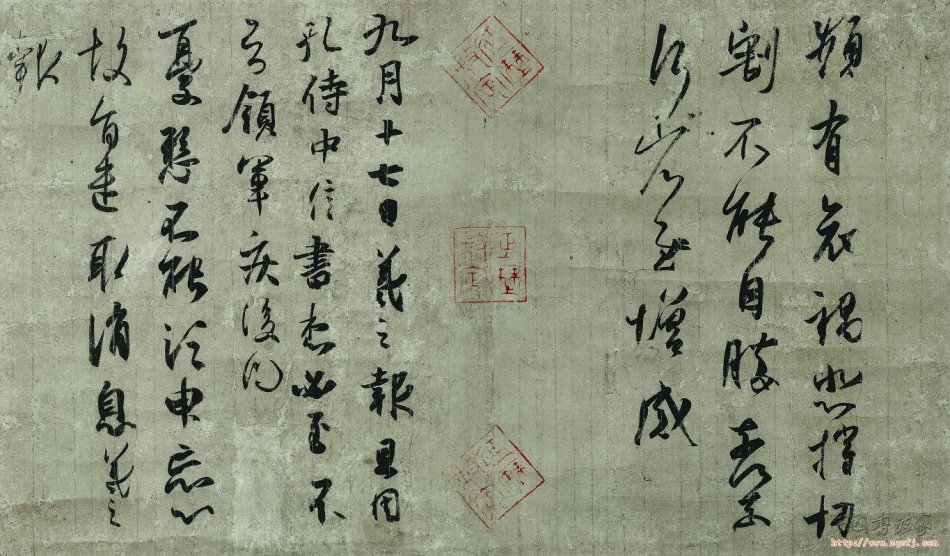 頻有哀禍悲摧切
割不能自勝奈何奈
何省慰增感
九月十七日羲之報且因
孔侍中信書想必至不
知領軍疾後問
憂懸不能須臾忘心
故旨遣取消息羲之
報
http://www.zgsfj.com